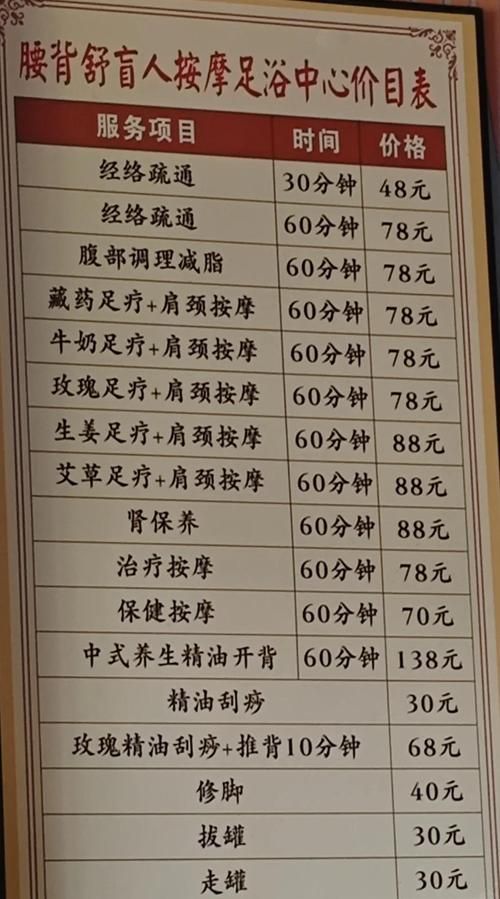 腰背舒盲人按摩足浴中心价目表
服务项目 时间 价格
经络疏通 30分钟 48元
经络疏通 60分钟 78元
腹部调理减脂 60分钟 78元
藏药足疗+肩颈按摩 60分钟 78元
牛奶足疗+肩颈按摩 60分钟 78元
玫瑰足疗+肩颈按摩 60分钟 78元
生姜足疗+肩颈按摩 60分钟 88元
艾草足疗+肩颈按摩 60分钟 88元
肾保养 60分钟 88元
治疗按摩 60分钟 78元
保健按摩 60分钟 70元
中式养生精油开背 60分钟 138元
精油刮痧 30元
玫瑰精油刮痧+推背10分钟 68元
修脚 40元
拔罐 30元
走罐 30元